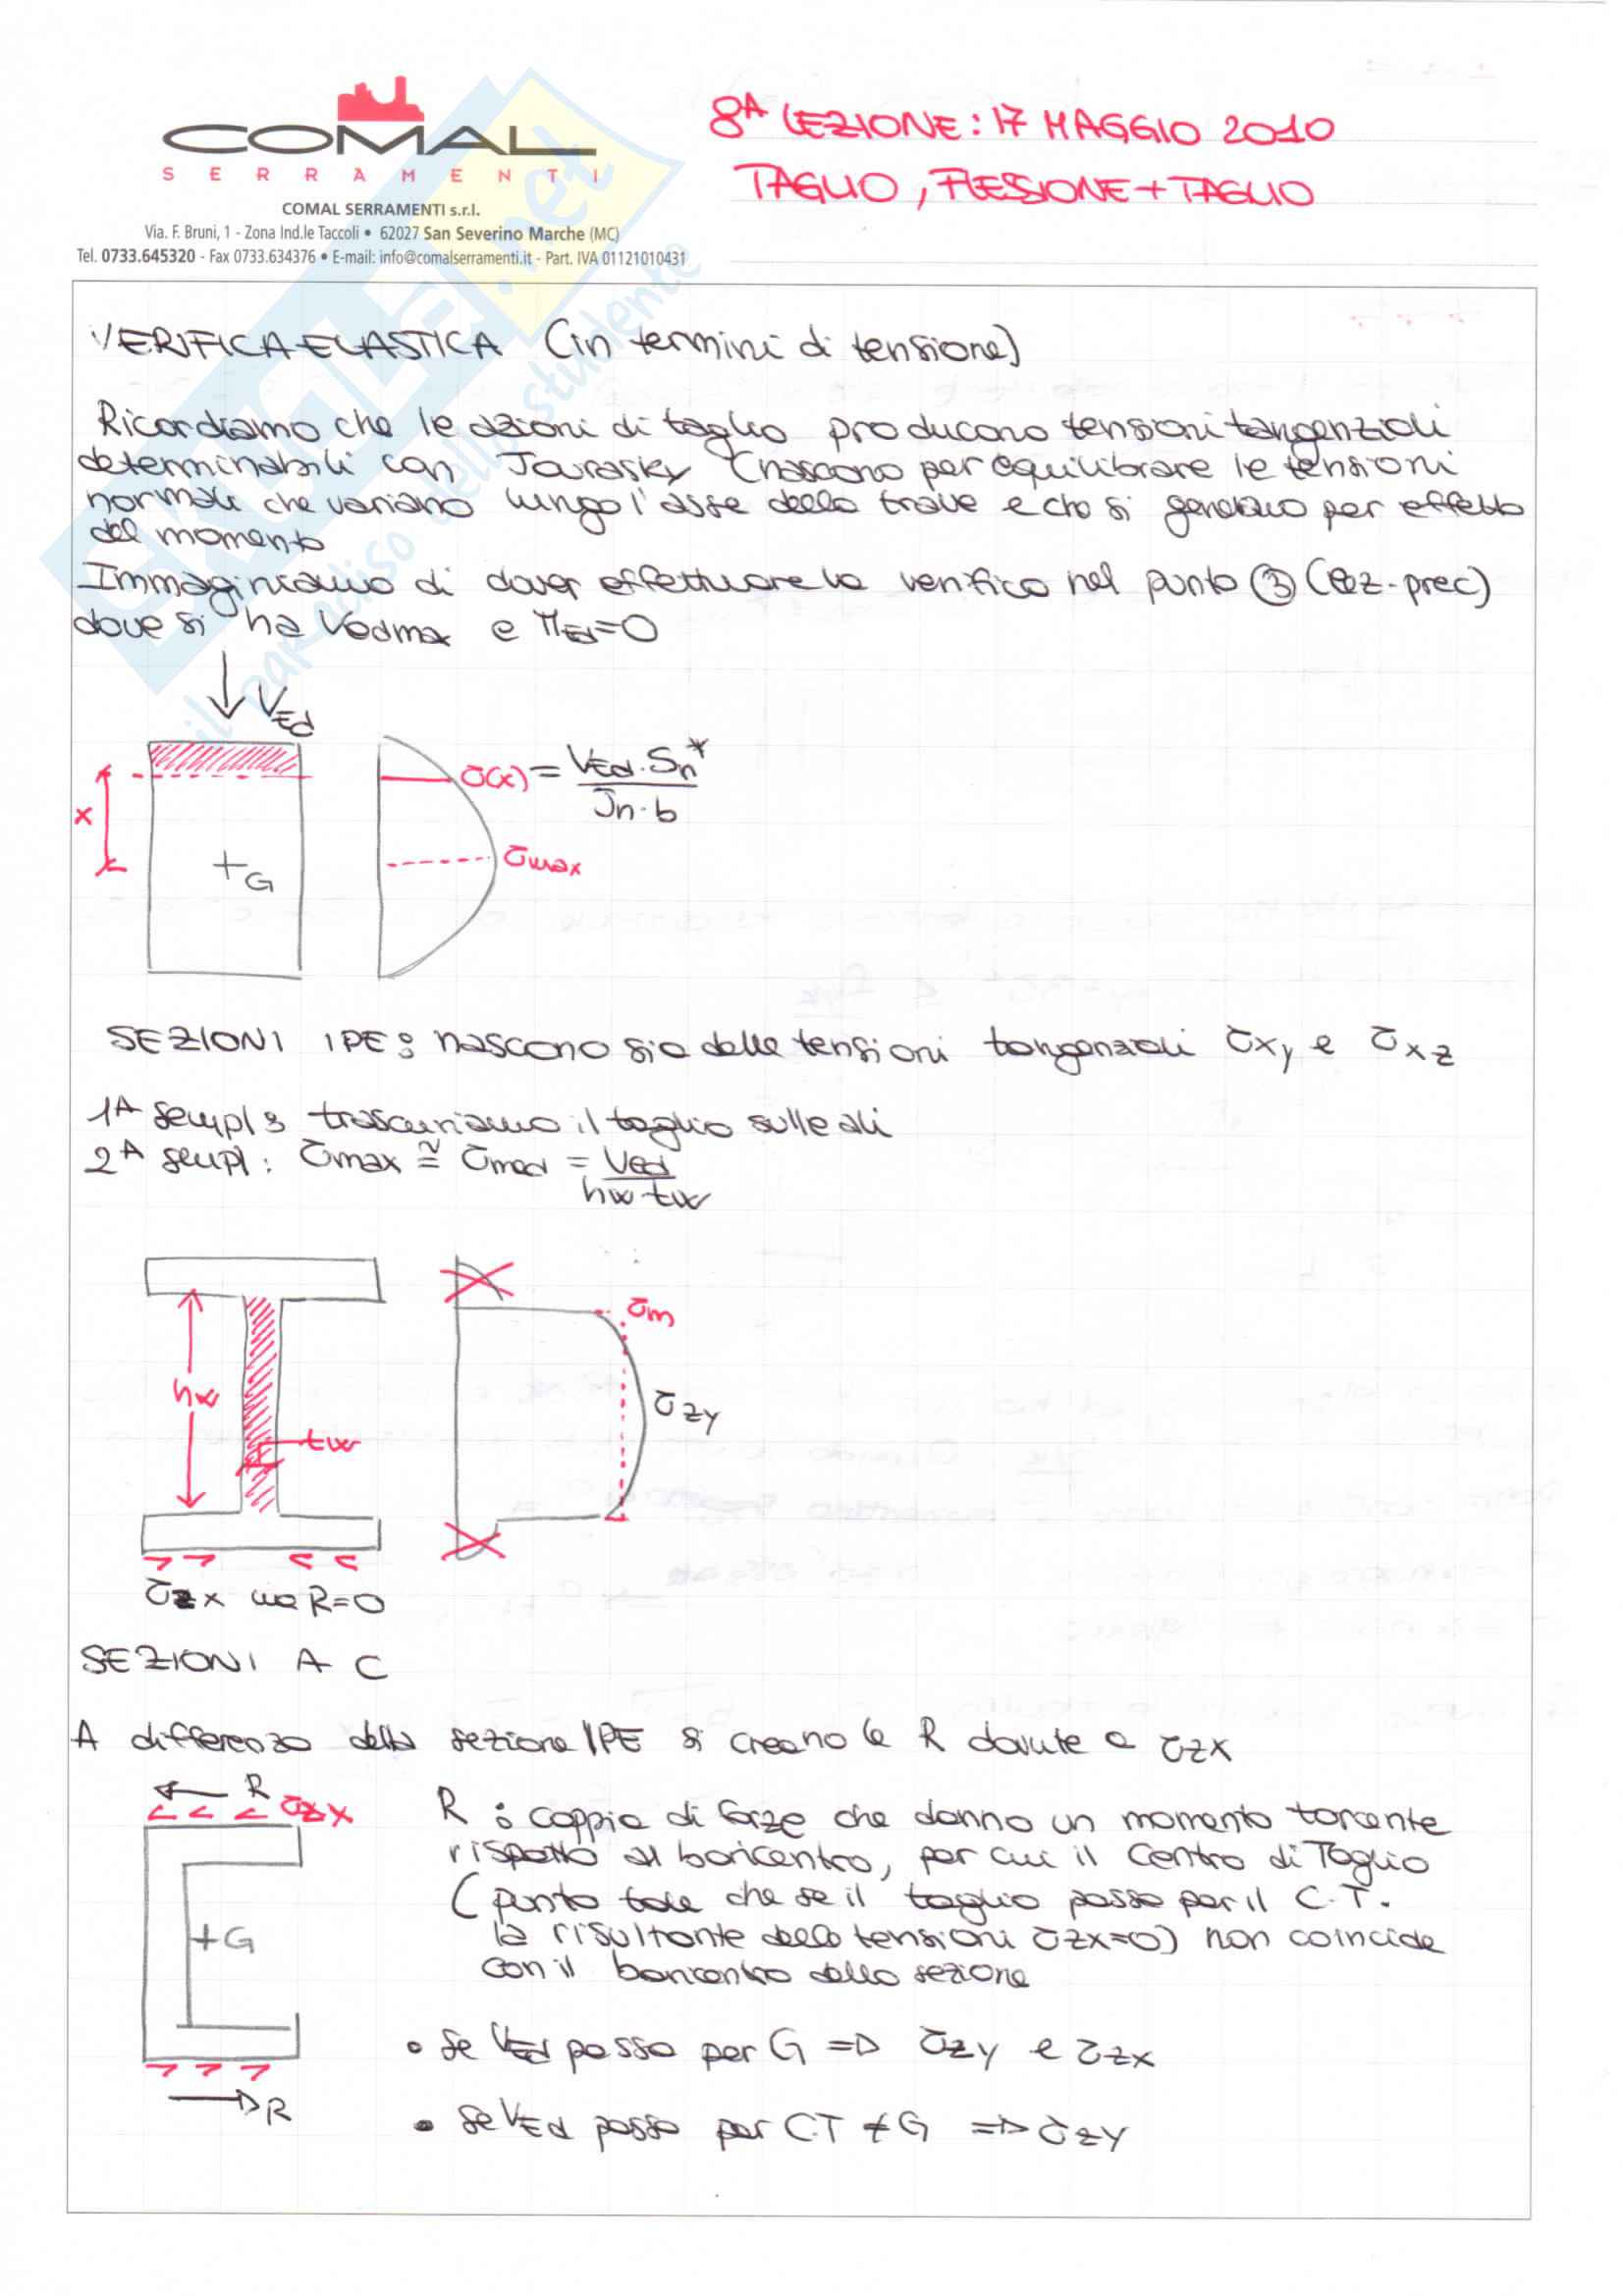 COMAL
SERRAMENTI
COMAL SERRAMENTI s.r.l.
Via. F. Bruni, 1 - Zona Ind.le Taccoli • 62027 San Severino Marche (MC)
Tel. 0733.645320 - Fax 0733.634376 • E-mail: info@comalserramenti.it - Part. IVA 01121010431
8A LEZIONE: 17 MAGGIO 2010
TAGLIO, FLESSIONE + TAGLIO
SKUOLA.net
il paradiso dello studente
VERIFICA ELASTICA (in termini di tensione)
Ricordiamo che le azioni di taglio producono tensioni tangenziali
determinabili con Jourasky (nascono per equilibrare le tensioni
normali che variano lungo l'asse della trave e che si generano per effetto
del momento
Immaginiamo di dover effettuare la verifica nel punto ③ (lez-prec)
dove si ha VEdmax e MEd=0
VEd
x
+G
τ(x) = VEd · Sn* / Jn · b
τmax
SEZIONI IPE: nascono sia delle tensioni tangenziali τxy e τxz
1A sempl: trascuriamo il taglio sulle ali
2A sempl: τmax ≅ τmed = VEd / hw · tw
hw
tw
τm
τzy
τzx ma R=0
SEZIONI A C
A differenza della sezione IPE si creano le R dovute a τzx
R
τzx
+G
R
R : coppia di forze che danno un momento torcente
rispetto al baricentro, per cui il Centro di Taglio
(punto tale che se il taglio passa per il C.T.
la risultante delle tensioni τzx=0) non coincide
con il baricentro della sezione
• se VEd passa per G => τzy e τzx
• se VEd passa per CT ≠ G => τzy